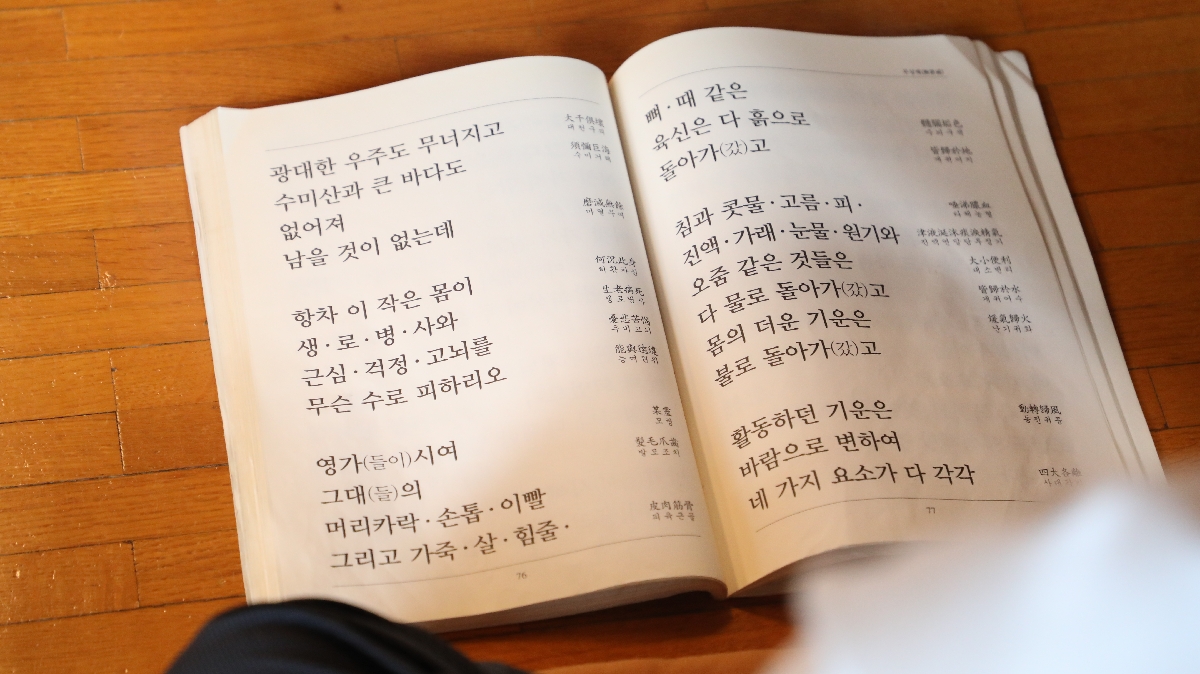 광대한 우주도 무너지고
수미산과 큰 바다도
없어져
남을 것이 없는데
항차 이 작은 몸이
생·로·병·사와
근심·걱정·고뇌를
무슨 수로 피하리오
영가(들이)시여
그대(들)의
머리카락·손톱·이빨
그리고 가죽·살·힘줄·
大千俱壞
대천구괴
須彌巨海
수미거해
磨滅無餘
마멸무여
何況此身
하황차신
生老病死
생로병사
憂悲苦惱
우비고뇌
能與遠違
능여원위
某靈
모령
髮毛爪齒
발모조치
皮肉筋骨
피육근골
76
뼈·때 같은
육신은 다 흙으로
돌아가(갔)고
침과 콧물·고름·피·
진액·가래·눈물·원기와
오줌 같은 것들은
다 물로 돌아가(갔)고
몸의 더운 기운은
불로 돌아가(갔)고
활동하던 기운은
바람으로 변하여
네 가지 요소가 다 각각
髓腦垢色
수뇌구색
皆歸於地
개귀어지
唾涕膿血
타체농혈
津液涎沫痰淚精氣
진액연말담루정기
大小便利
대소변리
皆歸於水
개귀어수
煖氣歸火
난기귀화
動轉歸風
동전귀풍
四大各
사대
77